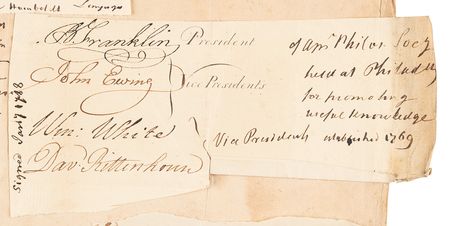 Humboldt
B. Franklin President
John Ewing Vice Presidents
Wm: White
Dav. Rittenhouse
of Am: Philos. Socy
held at Philadl
for promoting
useful knowledge
Vice Presidents established 1769
Signed Jany 1788